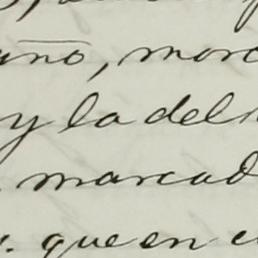 ano, marc
y la del
marcad
que en